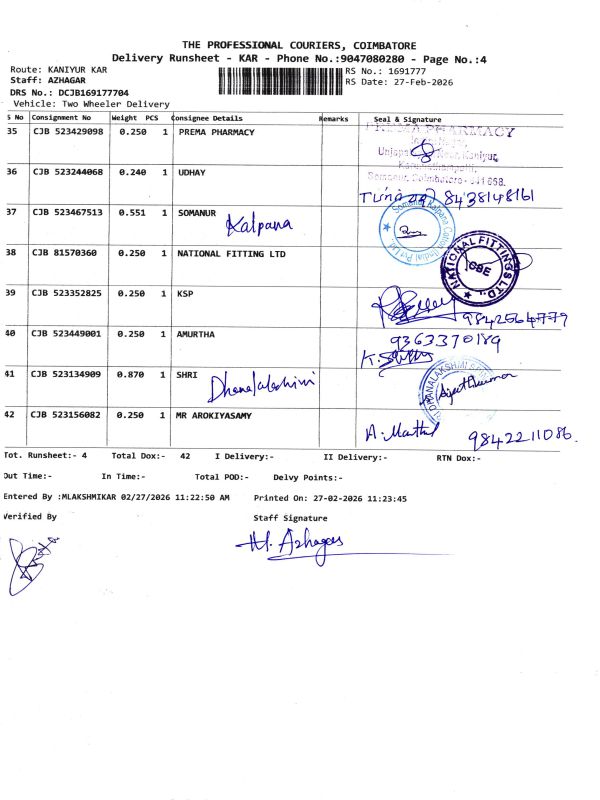 THE PROFESSIONAL COURIERS, COIMBATORE
Delivery Runsheet - KAR - Phone No.:9047080280 - Page No.:4
Route: KANIYUR KAR
RS No.: 1691777
Staff: AZHAGAR
RS Date: 27-Feb-2026
DRS No.: DCJB169177704
Vehicle: Two Wheeler Delivery
S No Consignment No Weight PCS Consignee Details Remarks Seal & Signature
35 CJB 523429098 0.250 1 PREMA PHARMACY
PREMA PHARMACY
Kaniyur,
Somanur, Coimbatore - 641 668.
36 CJB 523244068 0.240 1 UDHAY
8438148161
37 CJB 523467513 0.551 1 SOMANUR
Kalpana
Somanur Kalpana Cotton (India) Pvt Ltd
38 CJB 81570360 0.250 1 NATIONAL FITTING LTD
NATIONAL FITTINGS LTD.
CBE
39 CJB 523352825 0.250 1 KSP
9842564779
40 CJB 523449001 0.250 1 AMURTHA
9363370189
41 CJB 523134909 0.870 1 SHRI
Dhanalakshmi
DHANALAKSHMI
42 CJB 523156082 0.250 1 MR AROKIYASAMY
9842211086.
Tot. Runsheet:- 4 Total Dox:- 42 I Delivery:- II Delivery:- RTN Dox:-
Out Time:- In Time:- Total POD:- Delvy Points:-
Entered By :MLAKSHMIKAR 02/27/2026 11:22:50 AM Printed On: 27-02-2026 11:23:45
Verified By Staff Signature
M. Azhagar